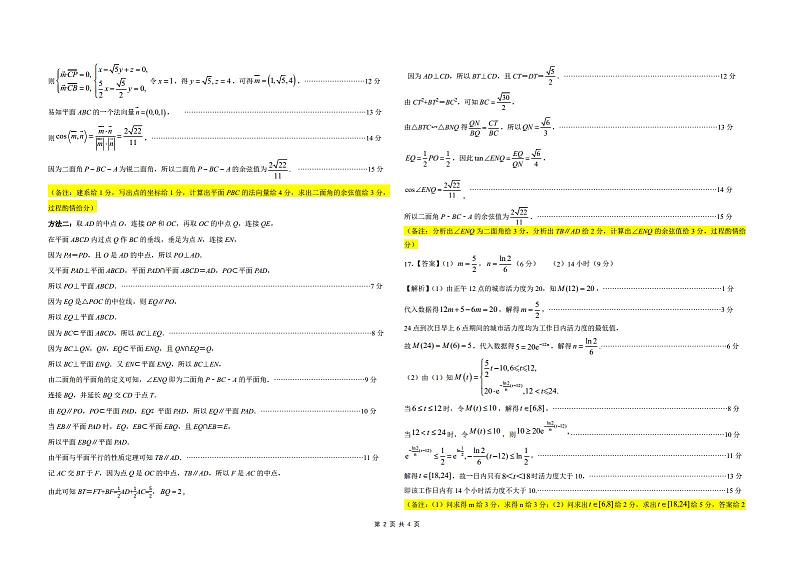 则{m·CP=0, m·CB=0, {x-√5y+z=0, 5/2x-√5/2y=0, 令x=1，得y=√5, z=4，可得m=(1,√5,4)，⋯⋯12分
易知平面ABC的一个法向量n=(0,0,1)，⋯⋯13分
则cos⟨m,n⟩=m·n/|m|·|n|=2√22/11，⋯⋯14分
因为二面角P－BC－A为锐二面角，所以二面角P－BC－A的余弦值为2√22/11．⋯⋯15分
（备注：建系给1分，写出点的坐标给1分，计算出平面PBC的法向量给4分，求出二面角的余弦值给3分，
过程酌情给分）
方法二：取AD的中点O，连接OP和OC，再取OC的中点Q，连接QE，
在平面ABCD内过点Q作BC的垂线，垂足为点N，连接EN，
因为PA=PD，且O是AD的中点，所以PO⊥AD．
又平面PAD⊥平面ABCD，平面PAD∩平面ABCD=AD，PO⊂平面PAD，
所以PO⊥平面ABCD．⋯⋯7分
因为EQ是△POC的中位线，则EQ∥PO，
所以EQ⊥平面ABCD．
因为BC⊂平面ABCD，所以BC⊥EQ．⋯⋯8分
因为BC⊥QN，QN，EQ⊂平面ENQ，且QN∩EQ=Q，
所以BC⊥平面ENQ．又EN⊂平面ENQ，所以BC⊥EN，
由二面角的平面角的定义可知，∠ENQ即为二面角P－BC－A的平面角．⋯⋯9分
连接BQ，并延长BQ交CD于点T．
由EQ∥PO，PO⊂平面PAD，EQ⊄平面PAD，所以EQ∥平面PAD．⋯⋯10分
当EB∥平面PAD时，EQ，EB⊂平面EBQ，且EQ∩EB=E，
所以平面EBQ∥平面PAD．
由平面与平面平行的性质定理可知TB∥AD．⋯⋯11分
记AC交BT于F，因为点Q是OC的中点，TB∥AD，所以F是AC的中点，
由此可知BT＝FT+BF=1/2AD+1/2AC=5/2，BQ＝2，
因为AD⊥CD，所以BT⊥CD，且CT＝DT＝√5/2．⋯⋯12分
由CT²+BT²＝BC²，可知BC=√30/2，
由△BTC∽△BNQ得QN/BQ=CT/BC，所以QN=√6/3，⋯⋯13分
EQ=1/2PO=1/2，因此tan∠ENQ=EQ/QN=√6/4，
cos∠ENQ=2√22/11，⋯⋯14分
所以二面角P－BC－A的余弦值为2√22/11．⋯⋯15分
（备注：分析出∠ENQ为二面角给3分，分析出TB∥AD给2分，计算出∠ENQ的余弦值给3分，过程酌情给
分）
17.【答案】（1）m=5/2，n=ln2/6（6分）（2）14小时（9分）
【解析】（1）由正午12点的城市活力度为20，知M(12)=20，⋯⋯1分
代入数据得12m+5-6m=20，解得m=5/2，⋯⋯3分
24点到次日早上6点期间的城市活力度均为工作日内活力度的最低值，
故M(24)=M(6)=5，代入数据得5=20e^{-12n}，解得n=ln2/6．⋯⋯6分
（2）由（1）知M(t)={5/2t-10,6⩽t⩽12, 20·e^{-ln2/6(t-12)},12<t⩽24.
当6≤t≤12时，令M(t)≤10，解得t∈[6,8]，⋯⋯8分
当12<t≤24时，令M(t)≤10，则10≥20e^{-ln2/6(t-12)}，⋯⋯10分
e^{-ln2/6(t-12)}≤1/2=e^{ln1/2},-ln2/6(t-12)≤ln1/2，⋯⋯11分
解得t∈[18,24]，故一日内只有8<t<18时活力度大于10，⋯⋯13分
即该工作日内有14个小时活力度不大于10．⋯⋯15分
（备注：（1）问求得m给3分，求得n给3分；（2）问求出t∈[6,8]给2分，求出t∈[18,24]给5分，答案给2
第 2 页 共 4 页